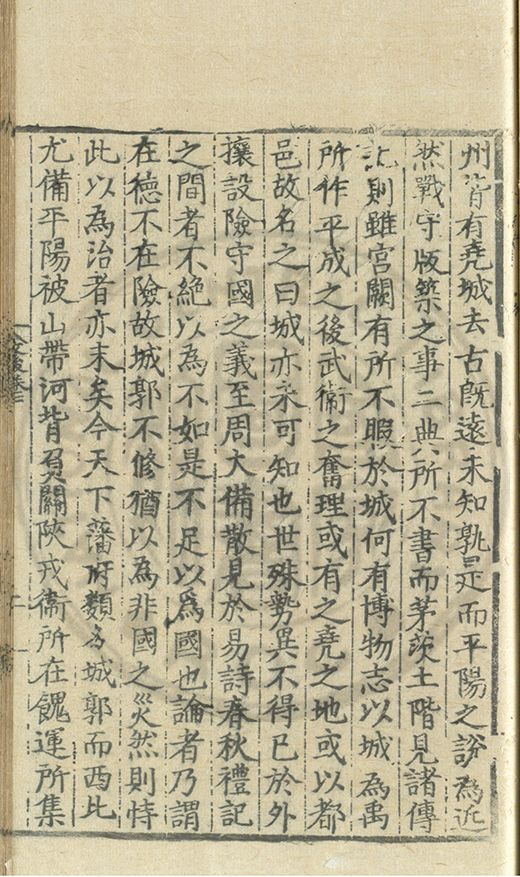 州皆有堯城去古既遠未知孰是而平陽之説為近
然戰守版築之事二典所不書而茅茨土階見諸傳
記則雖宮闕有所不暇於城何有博物志以城為禹
所作平成之後武衛之奮理或有之堯之地或以都
邑故名之曰城亦未可知也世殊勢異不得已於外
攘設險守國之義至周大備散見於易詩春秋禮記
之間者不絶以為不如是不足以為國也論者乃謂
在德不在險故城郭不修猶以為非國之災然則恃
此以為治者亦末矣今天下藩府類多城郭而西北
尤備平陽被山帶河背負關陝戎衛所在餽運所集